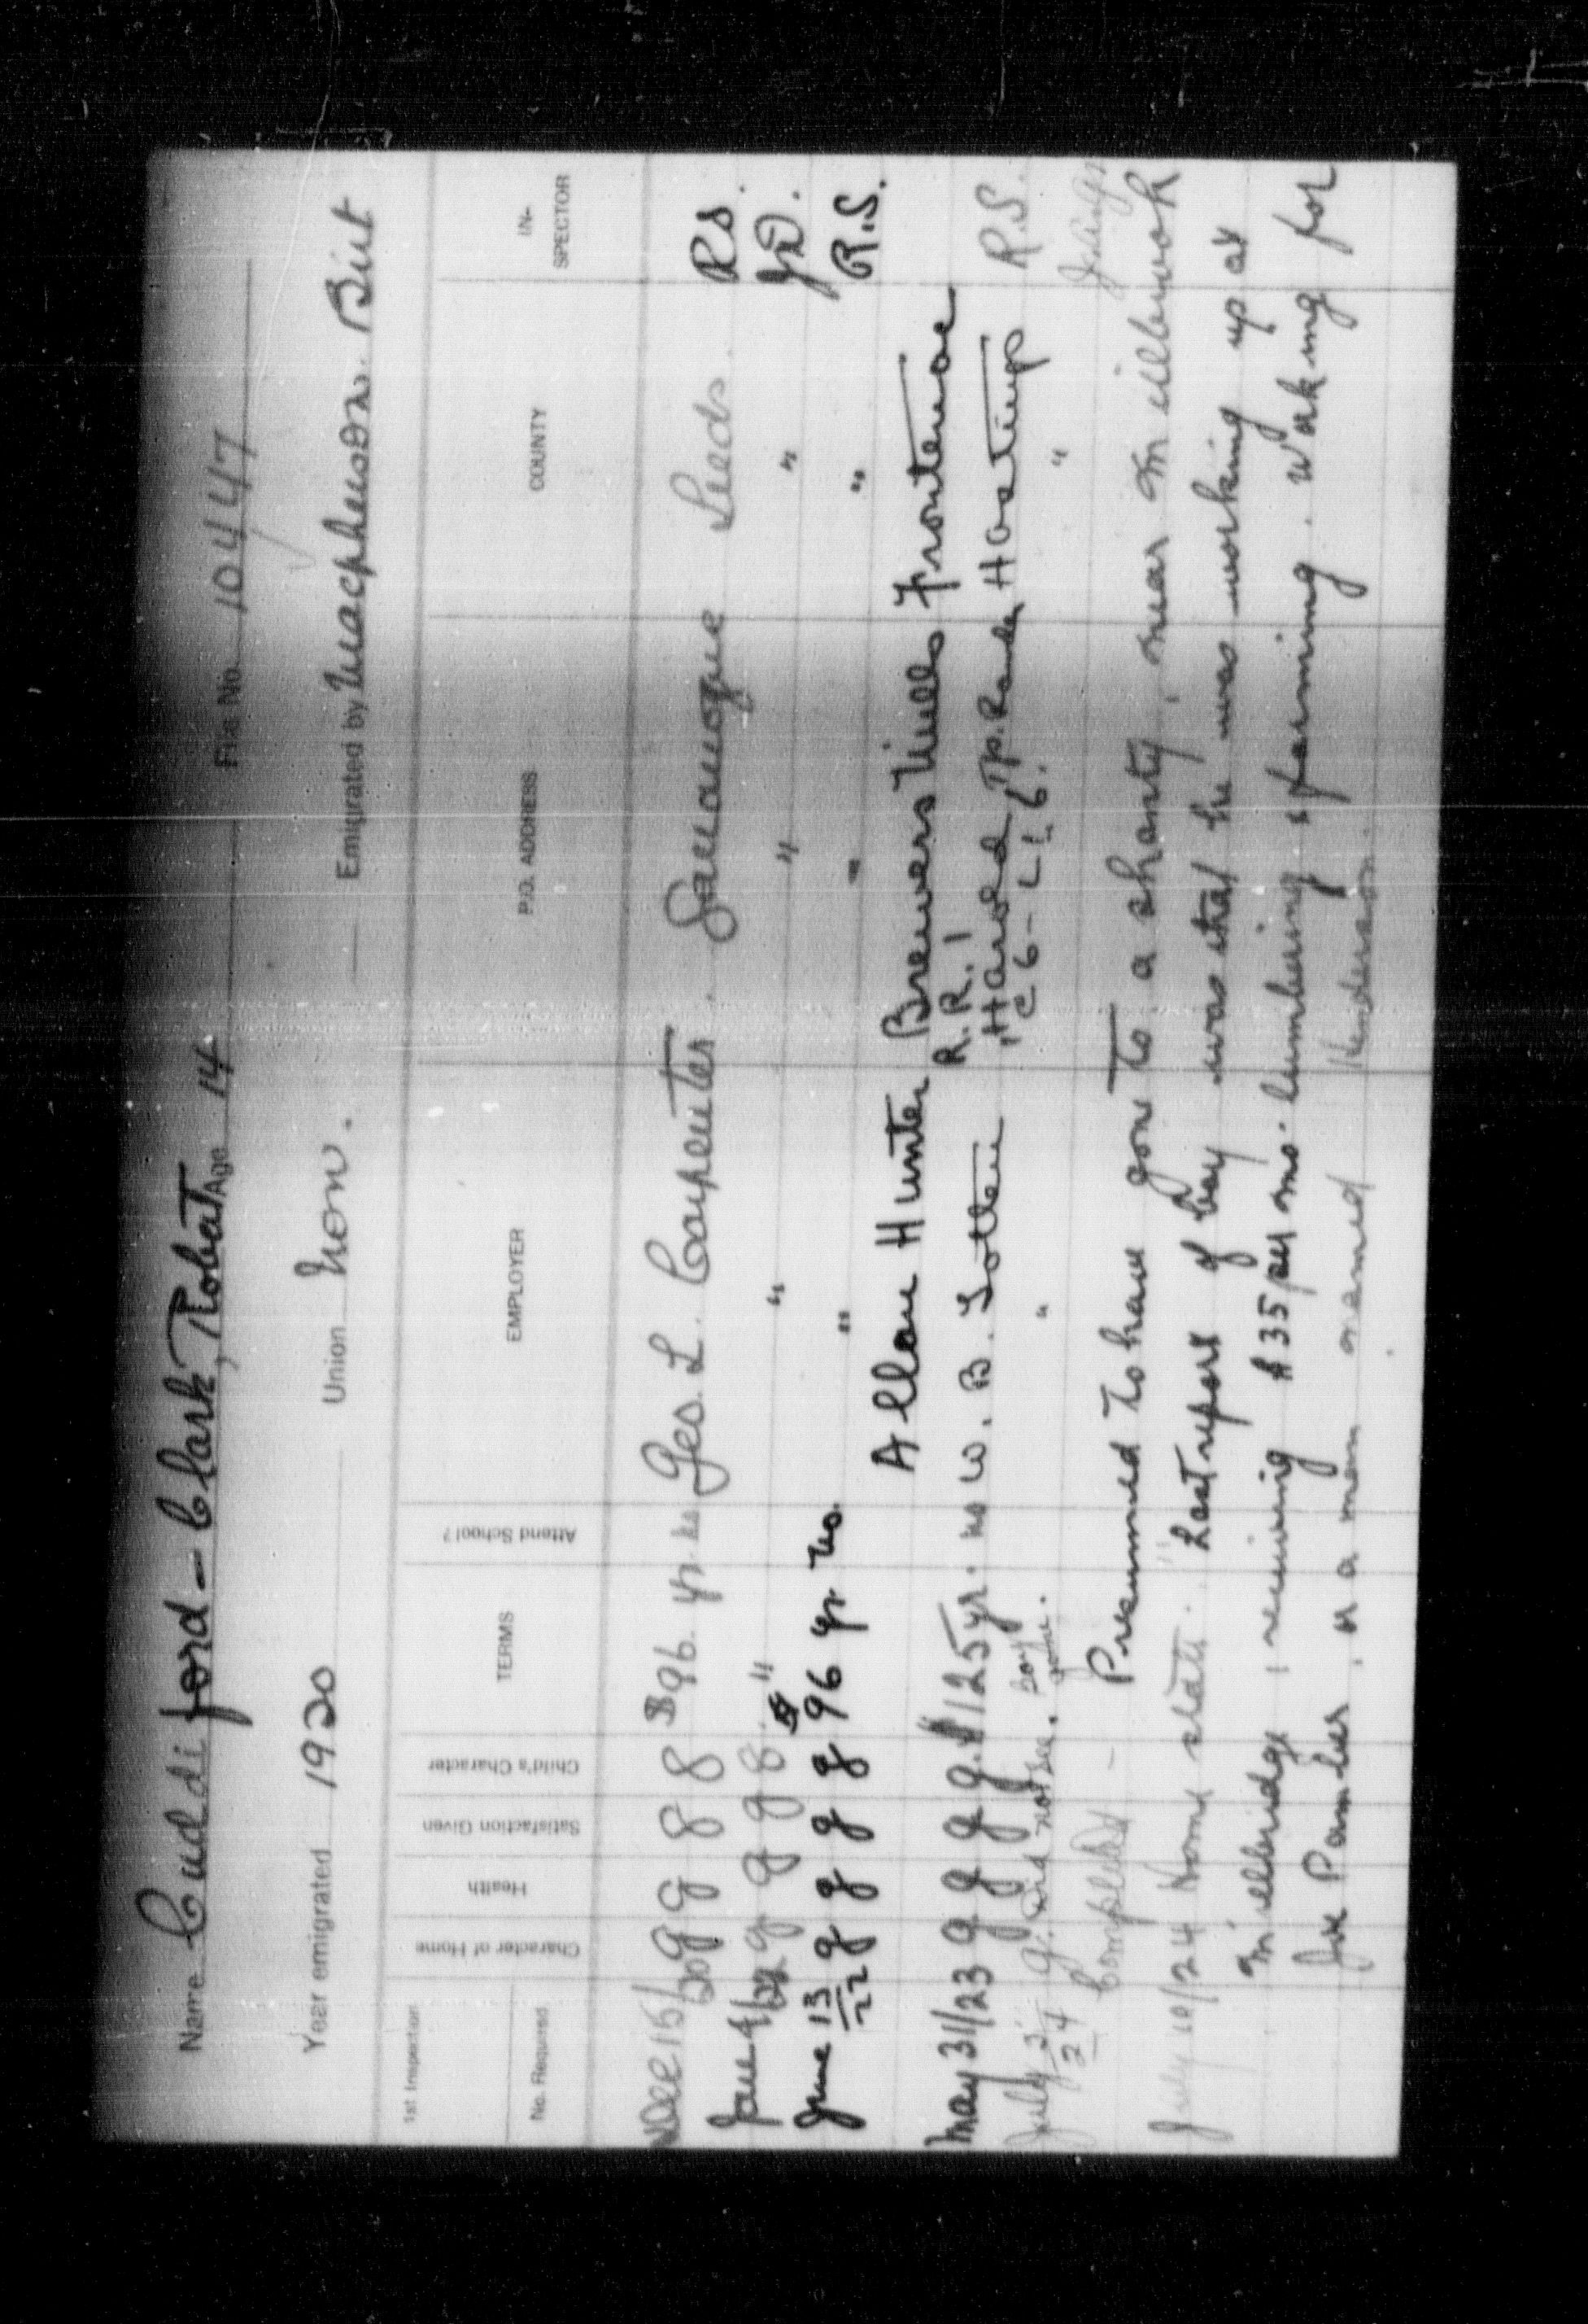 Name Cuddiford - Clark, Robert Age 14 File No. 10447
Year emigrated 1920 Union Non. Emigrated by Macpherson. Birt
1st Inspection
No. Required Character of Home Health Satisfaction Given Child's Character TERMS Attend School? EMPLOYER P.O. ADDRESS COUNTY IN-SPECTOR
Dec 15/20 g g g g $96 yr. no Geo. L. Carpenter. Gananoque Leeds. R.S.
June g g g g " " " "
June 13/22 g g g g 96 yr no. " " " R.S.
Allan Hunter Brewers Mills Frontenac
R.R. 1
May 31/23 g g g g. $125 yr. no W. B. " Harold Tp. Hastings R.S.
C 6 - L 16.
July 3/24 g. Did not see. Boy gone. " "
Completed - Presumed to have gone to a shanty, near Millbrook
July 10/24 Home state. Last report of boy was that he was working up at
Millbridge, receiving $35 per mo. lumbering & farming. Working for
Joe, or a man named Henderson.